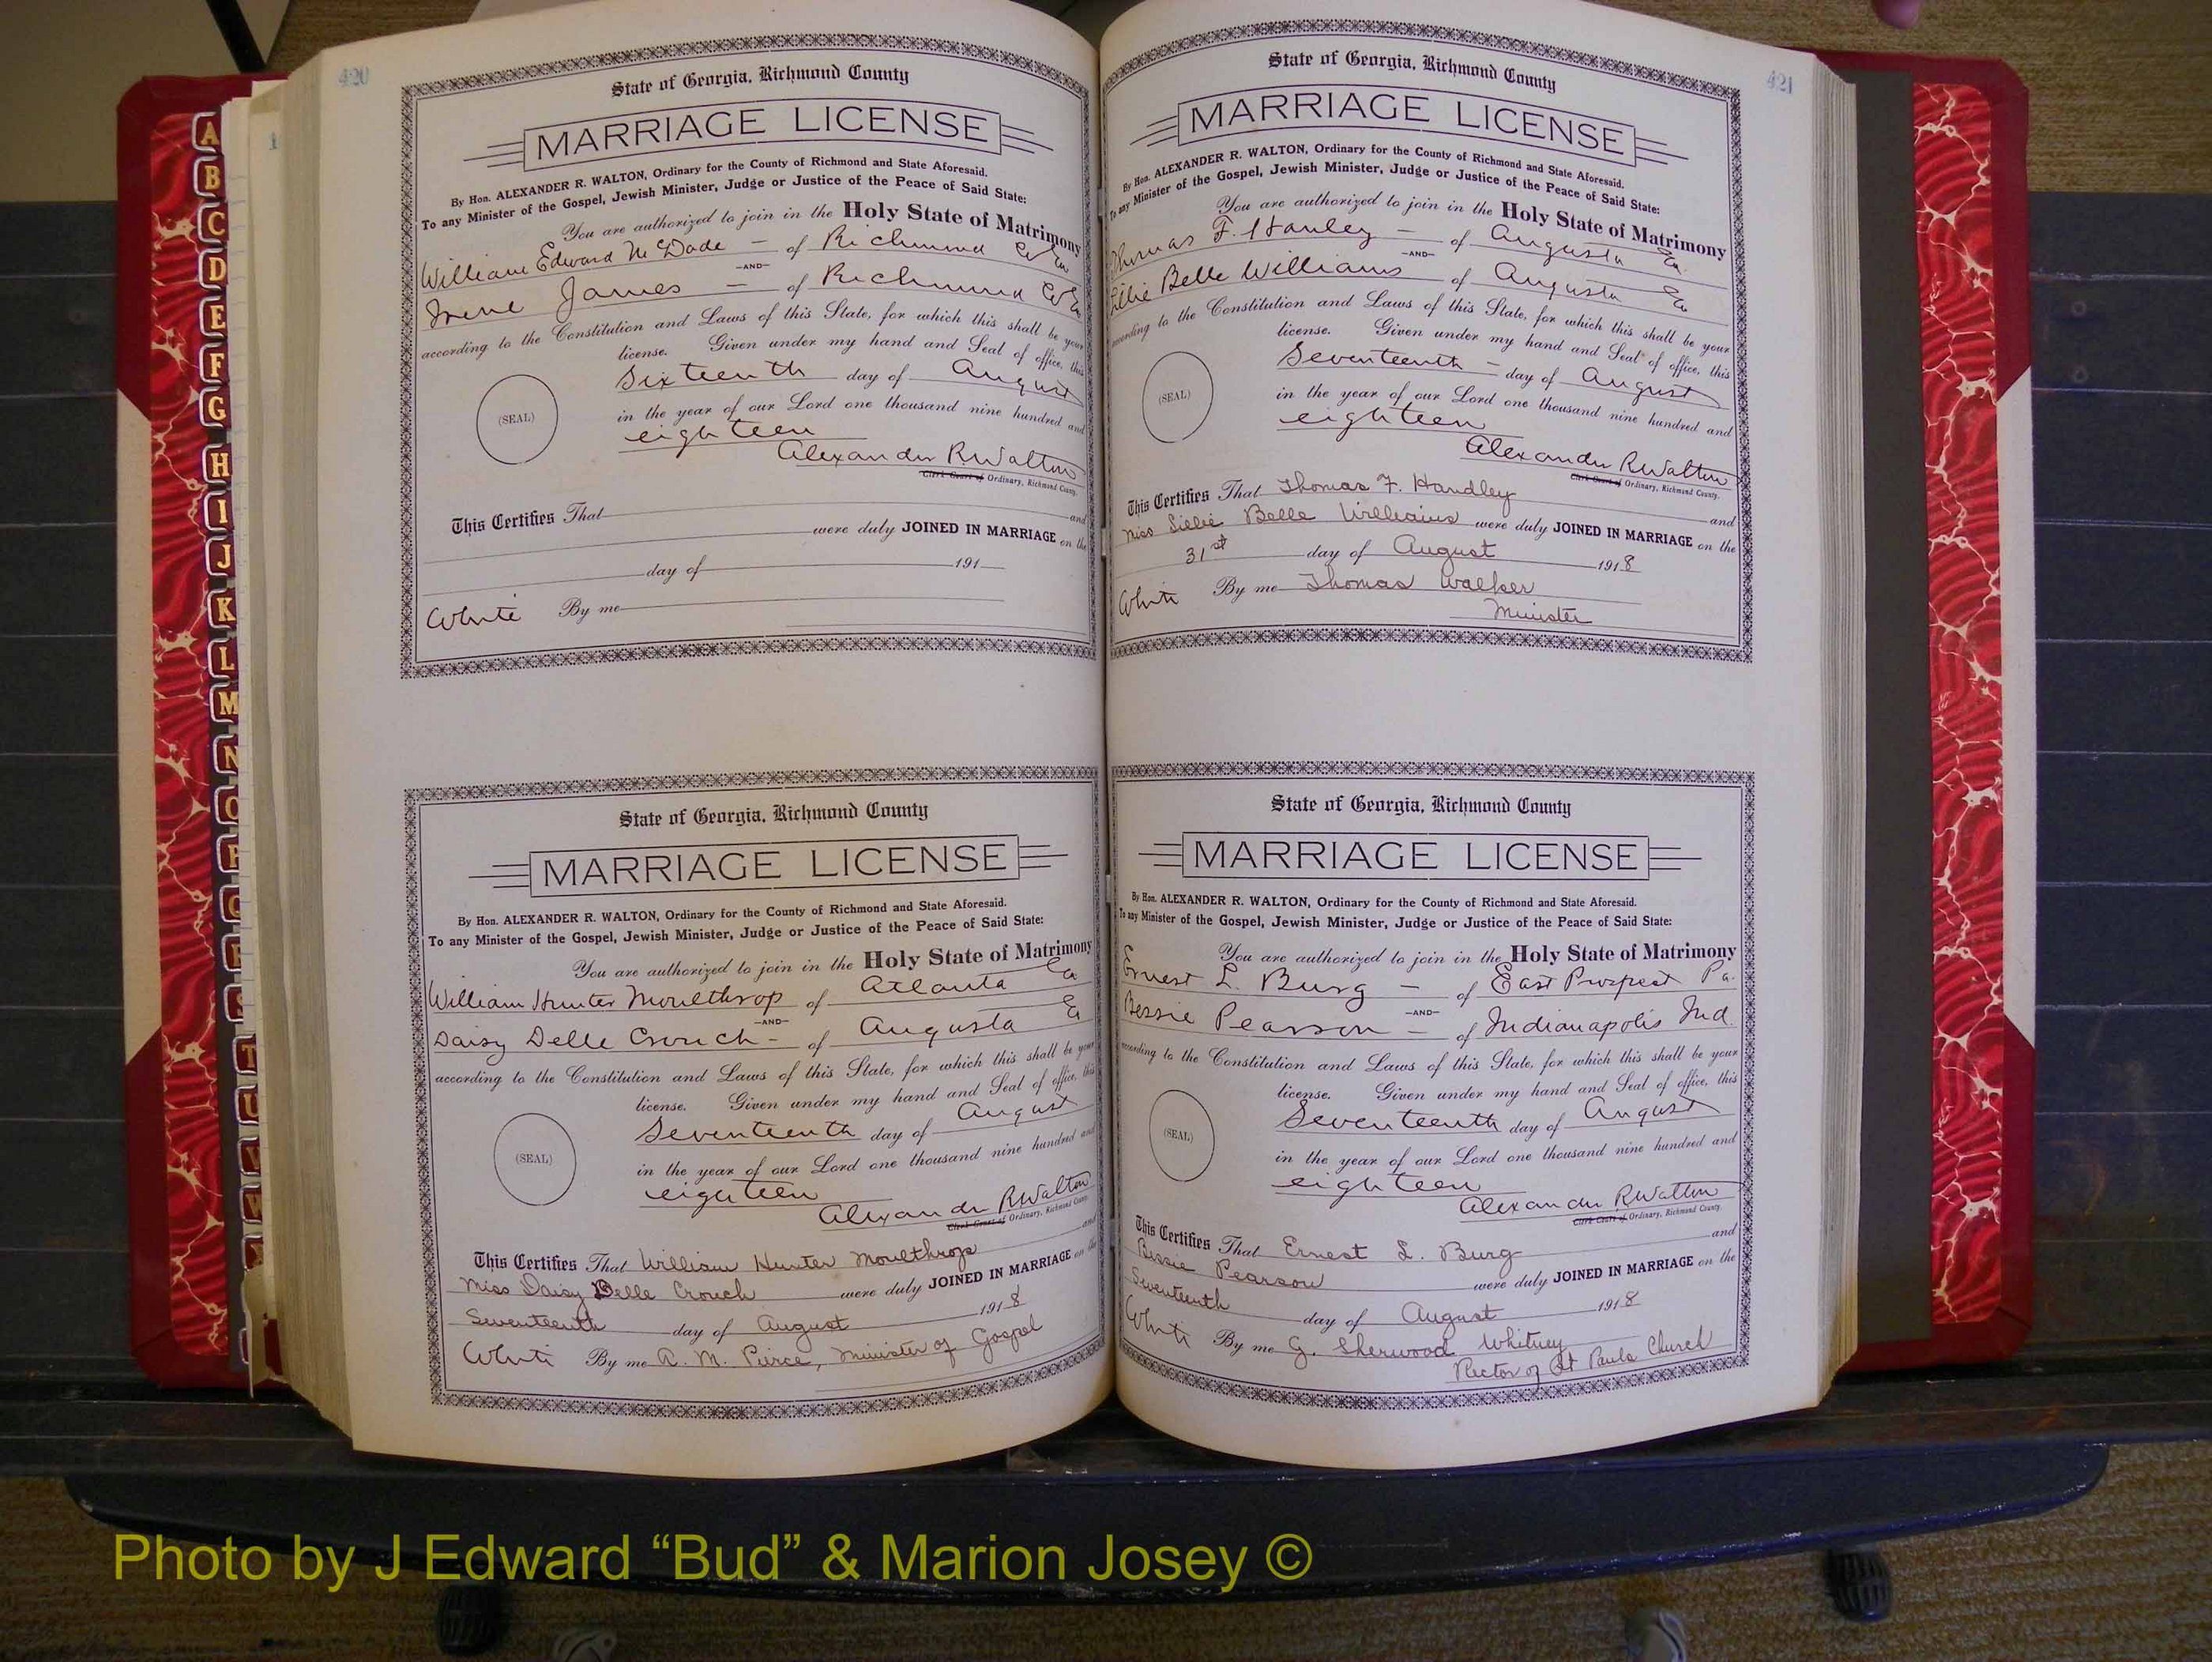 420
State of Georgia, Richmond County
MARRIAGE LICENSE
By Hon. ALEXANDER R. WALTON, Ordinary for the County of Richmond and State Aforesaid.
To any Minister of the Gospel, Jewish Minister, Judge or Justice of the Peace of Said State:
You are authorized to join in the Holy State of Matrimony
William Edward McDade — of Richmond Co Ga
—AND—
Irene James — of Richmond Co Ga
according to the Constitution and Laws of this State, for which this shall be your
license. Given under my hand and Seal of office, this
Sixteenth day of August
(SEAL)
in the year of our Lord one thousand nine hundred and
eighteen
Alexander R Walton
Clerk Court of Ordinary, Richmond County.
This Certifies That and
were duly JOINED IN MARRIAGE on the
day of 191
White By me
State of Georgia, Richmond County
MARRIAGE LICENSE
By Hon. ALEXANDER R. WALTON, Ordinary for the County of Richmond and State Aforesaid.
To any Minister of the Gospel, Jewish Minister, Judge or Justice of the Peace of Said State:
You are authorized to join in the Holy State of Matrimony
William Hunter Moulthrop of Atlanta Ga
—AND—
Daisy Delle Crouch - of Augusta Ga
according to the Constitution and Laws of this State, for which this shall be your
license. Given under my hand and Seal of office, this
Seventeenth day of August
(SEAL)
in the year of our Lord one thousand nine hundred and
eighteen
Alexander R Walton
Clerk Court of Ordinary, Richmond County.
This Certifies That William Hunter Moulthrop and
Miss Daisy Delle Crouch were duly JOINED IN MARRIAGE on the
Seventeenth day of August 1918
White By me A. M. Pierce, Minister of Gospel
421
State of Georgia, Richmond County
MARRIAGE LICENSE
By Hon. ALEXANDER R. WALTON, Ordinary for the County of Richmond and State Aforesaid.
To any Minister of the Gospel, Jewish Minister, Judge or Justice of the Peace of Said State:
You are authorized to join in the Holy State of Matrimony
Thomas F. Hanley — of Augusta Ga
—AND—
Lillie Belle Williams of Augusta Ga
according to the Constitution and Laws of this State, for which this shall be your
license. Given under my hand and Seal of office, this
Seventeenth — day of August
(SEAL)
in the year of our Lord one thousand nine hundred and
eighteen
Alexander R Walton
Clerk Court of Ordinary, Richmond County.
This Certifies That Thomas F. Handley and
Miss Lillie Belle Williams were duly JOINED IN MARRIAGE on the
31st day of August 1918
White By me Thomas Walker
Minister
State of Georgia, Richmond County
MARRIAGE LICENSE
By Hon. ALEXANDER R. WALTON, Ordinary for the County of Richmond and State Aforesaid.
To any Minister of the Gospel, Jewish Minister, Judge or Justice of the Peace of Said State:
You are authorized to join in the Holy State of Matrimony
Ernest L. Burg — of East Prospect Pa.
—AND—
Bessie Pearson — of Indianapolis Ind.
according to the Constitution and Laws of this State, for which this shall be your
license. Given under my hand and Seal of office, this
Seventeenth day of August
(SEAL)
in the year of our Lord one thousand nine hundred and
eighteen
Alexander R Walton
Clerk Court of Ordinary, Richmond County.
This Certifies That Ernest L. Burg and
Bessie Pearson were duly JOINED IN MARRIAGE on the
Seventeenth day of August 1918
White By me G. Sherwood Whitney
Rector of St Pauls Church
A
B
C
D
E
F
G
H
I
J
K
L
M
N
O
P
Q
R
S
T
U
V
W
Photo by J Edward “Bud” & Marion Josey ©